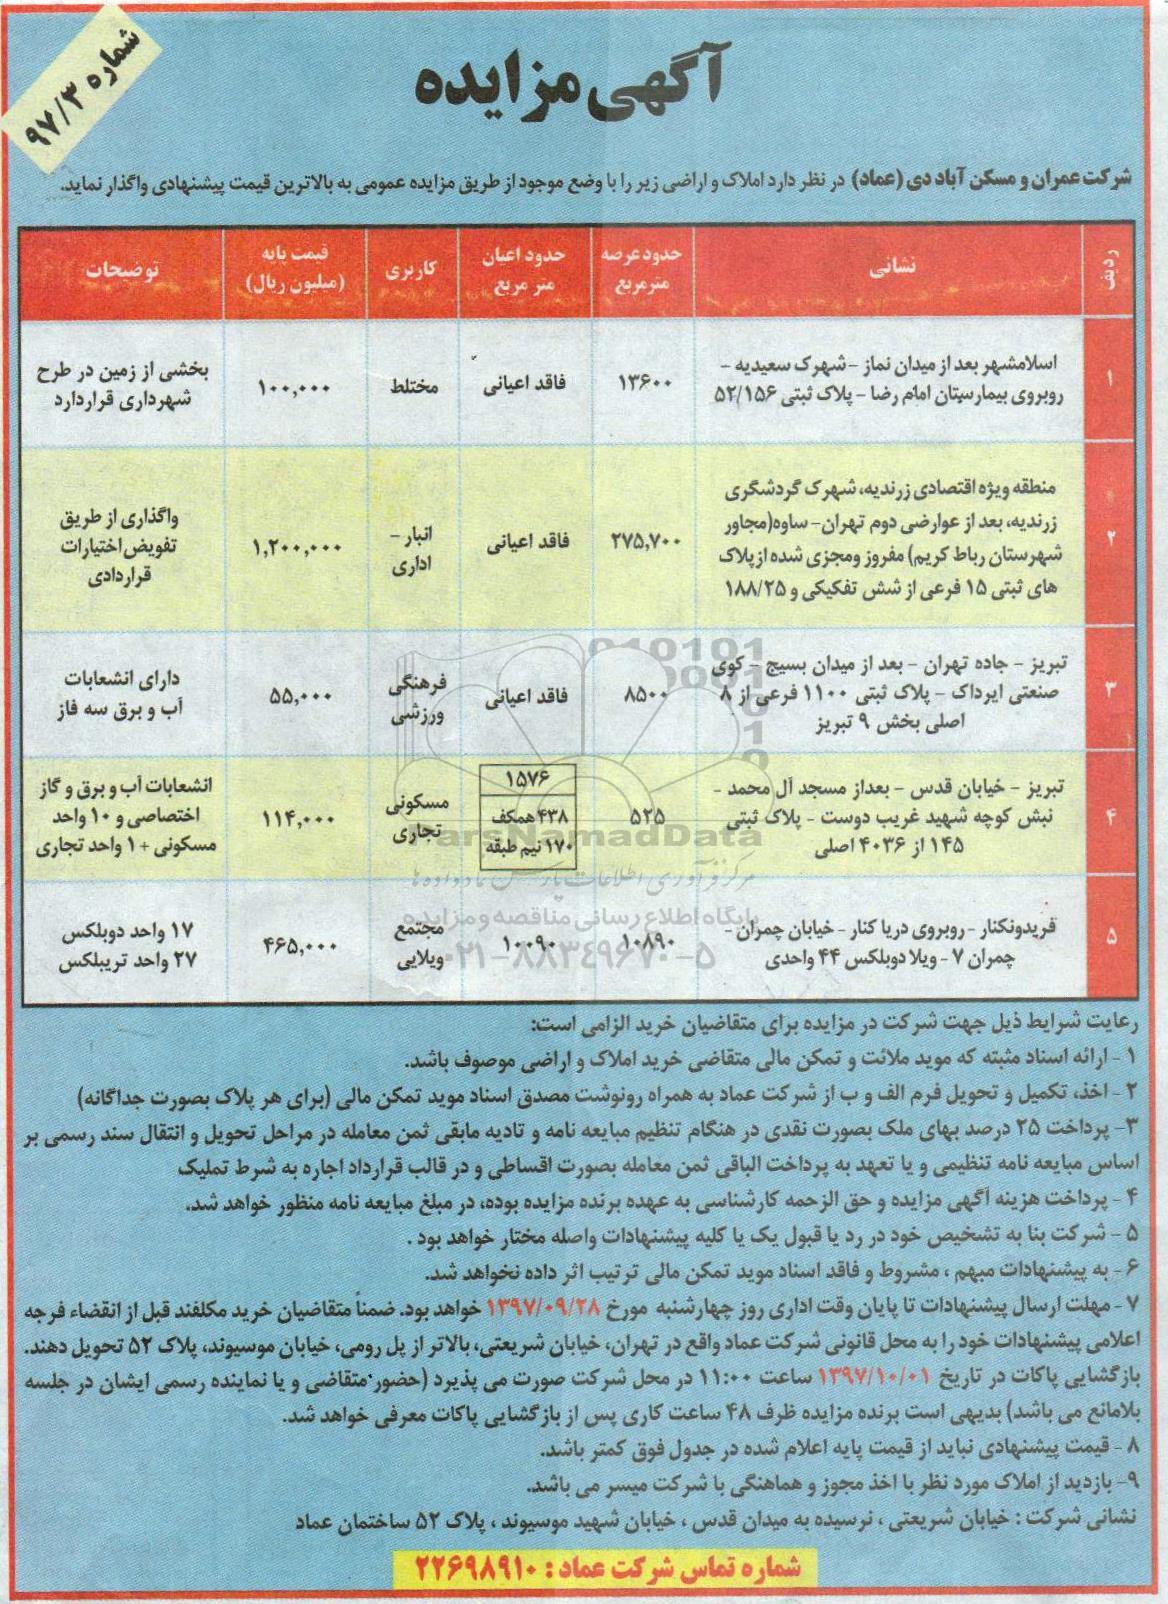 شماره ۹۷/۳
آگهی مزایده
شرکت عمران و مسکن آباد دی (عماد) در نظر دارد املاک و اراضی زیر را با وضع موجود از طریق مزایده عمومی به بالاترین قیمت پیشنهادی واگذار نماید.
ردیف نشانی حدود عرصه مترمربع حدود اعیان متر مربع کاربری قیمت پایه (میلیون ریال) توضیحات
۱
اسلامشهر بعد از میدان نماز - شهرک سعیدیه -
روبروی بیمارستان امام رضا - پلاک ثبتی ۵۲/۱۵۶
۱۳۶۰۰
فاقد اعیانی
مختلط
۱۰۰,۰۰۰
بخشی از زمین در طرح
شهرداری قراردارد
۲
منطقه ویژه اقتصادی زرندیه، شهرک گردشگری
زرندیه، بعد از عوارضی دوم تهران- ساوه(مجاور
شهرستان رباط کریم) مفروز ومجزی شده ازپلاک
های ثبتی ۱۵ فرعی از شش تفکیکی و ۱۸۸/۲۵
۲۷۵,۷۰۰
فاقد اعیانی
انبار -
اداری
۱,۲۰۰,۰۰۰
واگذاری از طریق
تفویض اختیارات
قراردادی
۳
تبریز - جاده تهران - بعد از میدان بسیج - کوی
صنعتی ایرداک - پلاک ثبتی ۱۱۰۰ فرعی از ۸
اصلی بخش ۹ تبریز
۸۵۰۰
فاقد اعیانی
فرهنگی
ورزشی
۵۵,۰۰۰
دارای انشعابات
آب و برق سه فاز
۴
تبریز - خیابان قدس - بعداز مسجد آل محمد -
نبش کوچه شهید غریب دوست - پلاک ثبتی
۱۴۵ از ۴۰۳۶ اصلی
۵۲۵
۱۵۷۶
۴۳۸ همکف
۱۷۰ نیم طبقه
مسکونی
تجاری
۱۱۴,۰۰۰
انشعابات آب و برق و گاز
اختصاصی و ۱۰ واحد
مسکونی + ۱ واحد تجاری
۵
فریدونکنار - روبروی دریا کنار - خیابان چمران -
چمران ۷ - ویلا دوبلکس ۴۴ واحدی
۱۰۸۹۰
۱۰۰۹۰
مجتمع
ویلایی
۴۶۵,۰۰۰
۱۷ واحد دوبلکس
۲۷ واحد تریبلکس
ParsNamadData
مرکز فرآوری اطلاعات پارس نماد داده ها
پایگاه اطلاع رسانی مناقصه و مزایده
۰۲۱-۸۸۳۴۹۶۷۰-۵
رعایت شرایط ذیل جهت شرکت در مزایده برای متقاضیان خرید الزامی است:
۱ - ارائه اسناد مثبته که موید ملائت و تمکن مالی متقاضی خرید املاک و اراضی موصوف باشد.
۲ - اخذ، تکمیل و تحویل فرم الف و ب از شرکت عماد به همراه رونوشت مصدق اسناد موید تمکن مالی (برای هر پلاک بصورت جداگانه)
۳- پرداخت ۲۵ درصد بهای ملک بصورت نقدی در هنگام تنظیم مبایعه نامه و تادیه مابقی ثمن معامله در مراحل تحویل و انتقال سند رسمی بر
اساس مبایعه نامه تنظیمی و یا تعهد به پرداخت الباقی ثمن معامله بصورت اقساطی و در قالب قرارداد اجاره به شرط تملیک
۴ - پرداخت هزینه آگهی مزایده و حق الزحمه کارشناسی به عهده برنده مزایده بوده، در مبلغ مبایعه نامه منظور خواهد شد.
۵ - شرکت بنا به تشخیص خود در رد یا قبول یک یا کلیه پیشنهادات واصله مختار خواهد بود .
۶ - به پیشنهادات مبهم ، مشروط و فاقد اسناد موید تمکن مالی ترتیب اثر داده نخواهد شد.
۷ - مهلت ارسال پیشنهادات تا پایان وقت اداری روز چهارشنبه مورخ ۱۳۹۷/۰۹/۲۸ خواهد بود. ضمناً متقاضیان خرید مکلفند قبل از انقضاء فرجه
اعلامی پیشنهادات خود را به محل قانونی شرکت عماد واقع در تهران، خیابان شریعتی، بالاتر از پل رومی، خیابان موسیوند، پلاک ۵۲ تحویل دهند.
بازگشایی پاکات در تاریخ ۱۳۹۷/۱۰/۰۱ ساعت ۱۱:۰۰ در محل شرکت صورت می پذیرد (حضور متقاضی و یا نماینده رسمی ایشان در جلسه
بلامانع می باشد) بدیهی است برنده مزایده ظرف ۴۸ ساعت کاری پس از بازگشایی پاکات معرفی خواهد شد.
۸ - قیمت پیشنهادی نباید از قیمت پایه اعلام شده در جدول فوق کمتر باشد.
۹- بازدید از املاک مورد نظر با اخذ مجوز و هماهنگی با شرکت میسر می باشد.
نشانی شرکت : خیابان شریعتی ، نرسیده به میدان قدس ، خیابان شهید موسیوند ، پلاک ۵۲ ساختمان عماد
شماره تماس شرکت عماد : ۲۲۶۹۸۹۱۰